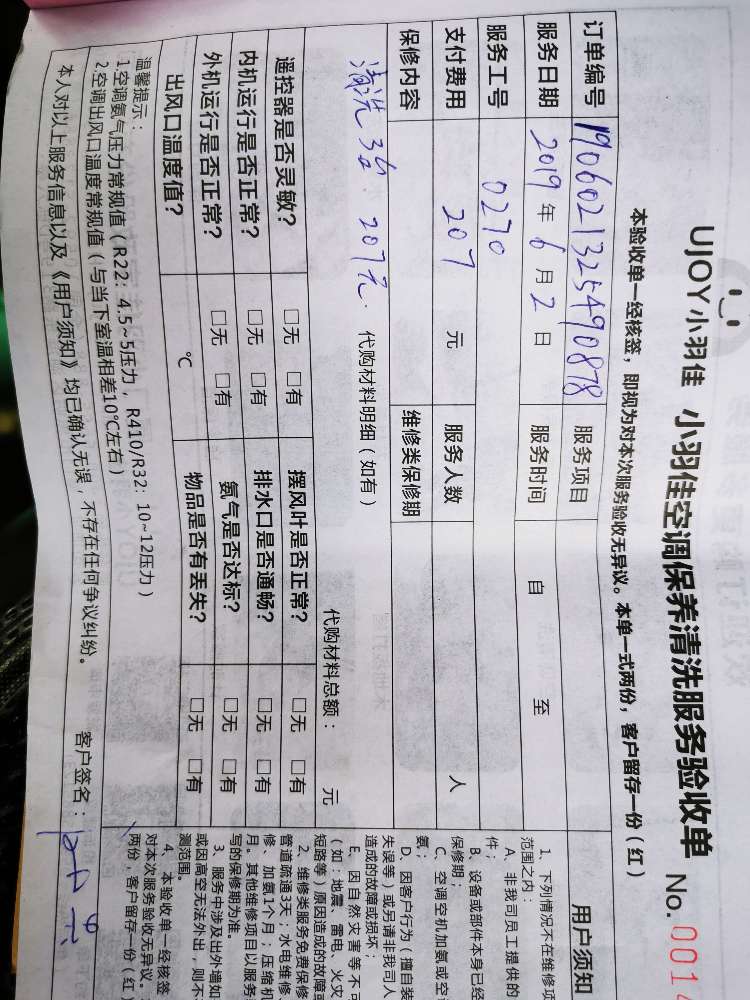 UJOY小羽佳 小羽佳空调保养清洗服务验收单 No. 0014
本验收单一经核签，即视为对本次服务验收无异议。本单一式两份，客户留存一份（红）
订单编号 190602132549087８ 服务项目
服务日期 2019年6月2日 服务时间 自 至
服务工号 0270
支付费用 207 元 服务人数 人
保修内容 维修类保修期
清洗3台 207元. 代购材料明细（如有）
代购材料总额： 元
遥控器是否灵敏？ □无 □有 摆风叶是否正常？ □无 □有
内机运行是否正常？ □无 □有 排水口是否通畅？ □无 □有
外机运行是否正常？ □无 □有 氨气是否达标？ □无 □有
出风口温度值？ ℃ 物品是否有丢失？ □无 □有
温馨提示：
1空调氨气压力常规值（R22：4.5~5压力，R410/R32：10~12压力）
2空调出风口温度常规值（与当下室温相差10℃左右）
本人对以上服务信息以及《用户须知》均已确认无误，不存在任何争议纠纷。 客户签名：
用户须知
1、下列情况不在维修项
范围之内：
A、非我司员工提供的
件；
B、设备或部件本身已经
保修期；
C、空调空机加氨或空
氨；
D、因客户行为（擅自装
失误等）或另请非我司人
造成的故障或损坏；
E、因自然灾害等不可
（如：地震、雷电、火灾
短路等）原因造成的故障或
2、维修类服务免费保修
管道疏通3天；水电维修
修、加氨1个月；压缩机
月。其他维修项目以服务
写的保修期为准。
3、服务中涉及出外墙如
或因高空无法外出，则不
测范围。
4、本验收单一经核签
对本次服务验收无异议。
两份，客户留存一份（红）